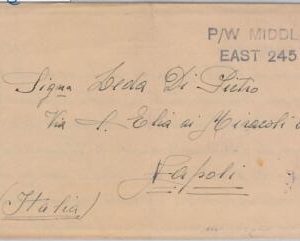 P/W MIDDL
EAST 245
Signa Leda Di Pietro
Via S. Elia ai Miracoli
Napoli
(Italia)